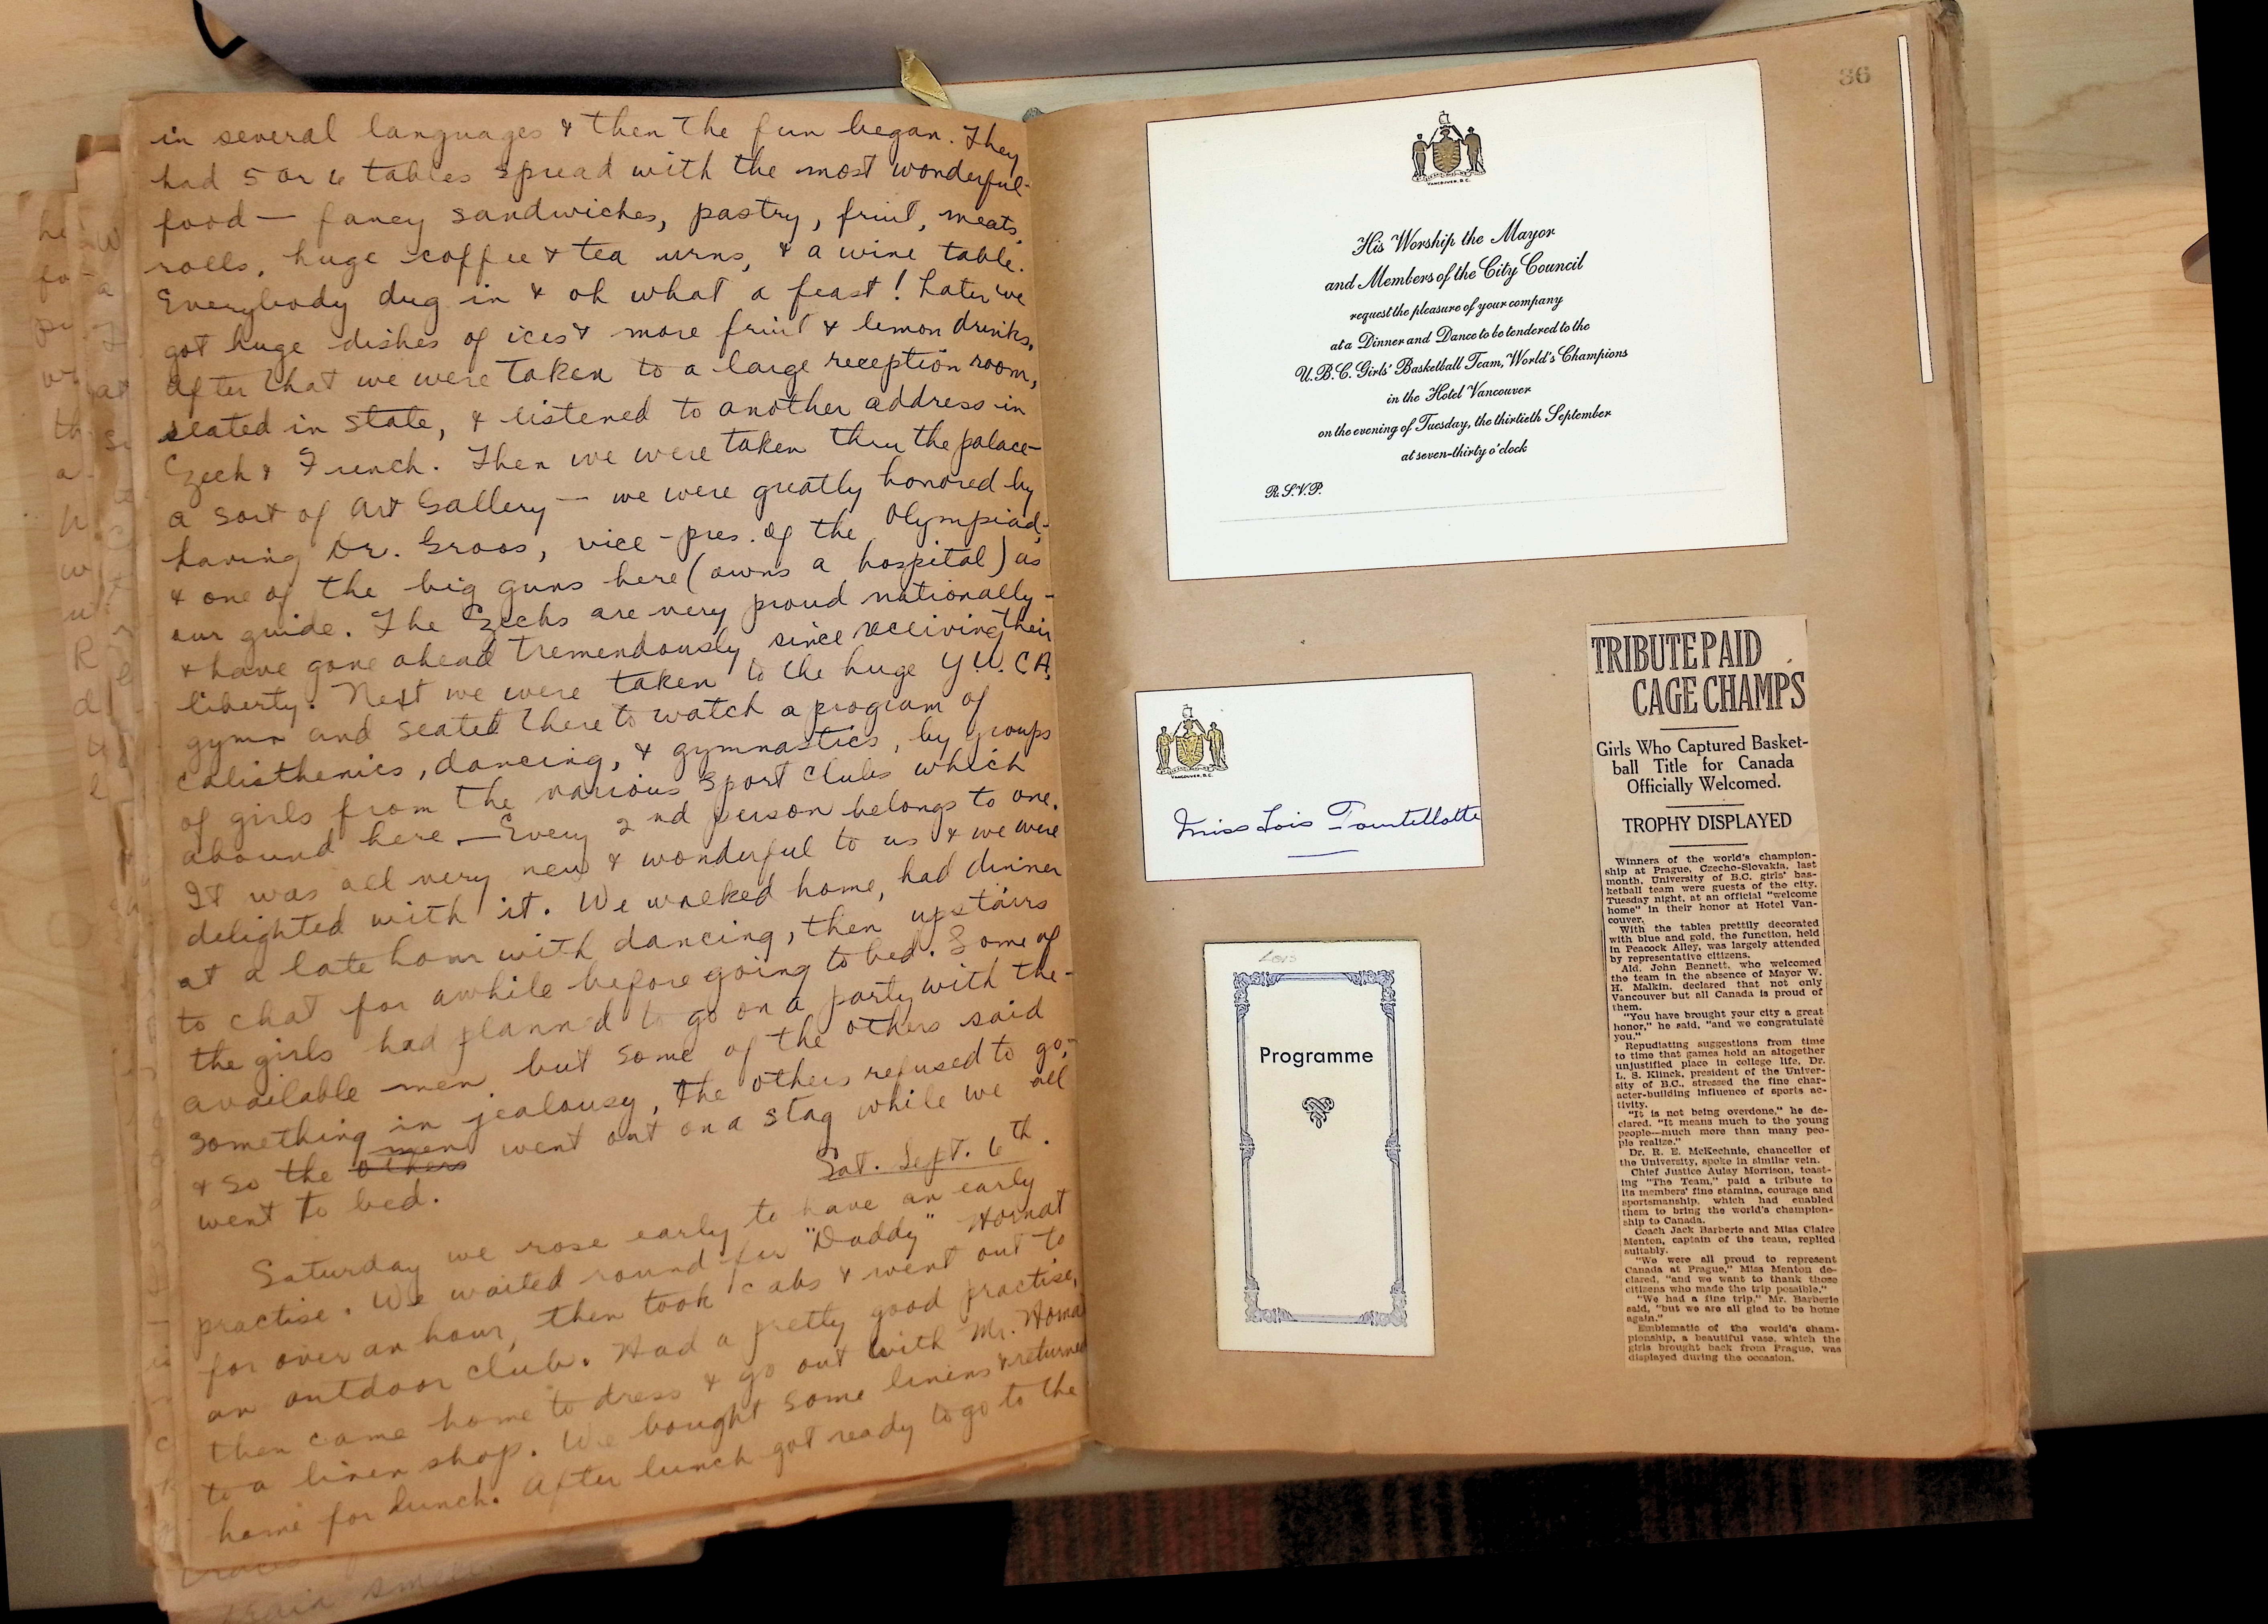 in several languages & then the fun began. They
had 5 or 6 tables spread with the most wonderful
food — fancy sandwiches, pastry, fruit, meats,
rolls, huge coffee & tea urns, & a wine table.
Everybody dug in & oh what a feast! Later we
got huge dishes of ices & more fruit & lemon drinks.
After that we were taken to a large reception room,
seated in state, & listened to another address in
Czech & French. Then we were taken thru the palace —
a sort of Art Gallery — we were greatly honored by
having Dr. Groos, vice-pres. of the Olympiad,
& one of the big guns here (owns a hospital) as
our guide. The Czechs are very proud nationally -
& have gone ahead tremendously since receiving their
liberty. Next we were taken to the huge Y.W.C.A.
gymn and seated there to watch a program of
calisthenics, dancing, & gymnastics, by groups
of girls from the various sport clubs which
abound here — Every 2nd person belongs to one.
It was all very new & wonderful to us & we were
delighted with it. We walked home, had dinner
at a late hour with dancing, then upstairs
to chat for awhile before going to bed. Some of
the girls had plann'd to go on a party with the
available men, but some of the others said
something in jealousy, the others refused to go,
& so the others men went out on a stag while we all
went to bed.
Sat. Sept. 6th.
Saturday we rose early to have an early
practise. We waited round for "Daddy" Hornat
for over an hour, then took cabs & went out to
an outdoor club. Had a pretty good practise,
then came home to dress & go out with Mr. Horna
to a linen shop. We bought some linens & returned
home for lunch. After lunch got ready to go to the
36
VANCOUVER, B.C.
His Worship the Mayor
and Members of the City Council
request the pleasure of your company
at a Dinner and Dance to be tendered to the
U.B.C. Girls' Basketball Team, World's Champions
in the Hotel Vancouver
on the evening of Tuesday, the thirtieth September
at seven-thirty o'clock
R.S.V.P.
VANCOUVER, B.C.
Miss Lois Tourtellotte
Lois
Programme
TRIBUTE PAID
CAGE CHAMPS
Girls Who Captured Basket-
ball Title for Canada
Officially Welcomed.
TROPHY DISPLAYED
Winners of the world's champion-
ship at Prague, Czecho-Slovakia, last
month, University of B.C. girls' bas-
ketball team were guests of the city,
Tuesday night, at an official "welcome
home" in their honor at Hotel Van-
couver.
With the tables prettily decorated
with blue and gold, the function, held
in Peacock Alley, was largely attended
by representative citizens.
Ald. John Bennett, who welcomed
the team in the absence of Mayor W.
H. Malkin, declared that not only
Vancouver but all Canada is proud of
them.
"You have brought your city a great
honor," he said, "and we congratulate
you."
Repudiating suggestions from time
to time that games hold an altogether
unjustified place in college life, Dr.
L. S. Klinck, president of the Univer-
sity of B.C., stressed the fine char-
acter-building influence of sports ac-
tivity.
"It is not being overdone," he de-
clared. "It means much to the young
people—much more than many peo-
ple realize."
Dr. R. E. McKechnie, chancellor of
the University, spoke in similar vein.
Chief Justice Aulay Morrison, toast-
ing "The Team," paid a tribute to
its members' fine stamina, courage and
sportsmanship, which had enabled
them to bring the world's champion-
ship to Canada.
Coach Jack Barberie and Miss Claire
Menton, captain of the team, replied
suitably.
"We were all proud to represent
Canada at Prague," Miss Menton de-
clared, "and we want to thank those
citizens who made the trip possible."
"We had a fine trip," Mr. Barberie
said, "but we are all glad to be home
again."
Emblematic of the world's cham-
pionship, a beautiful vase, which the
girls brought back from Prague, was
displayed during the occasion.